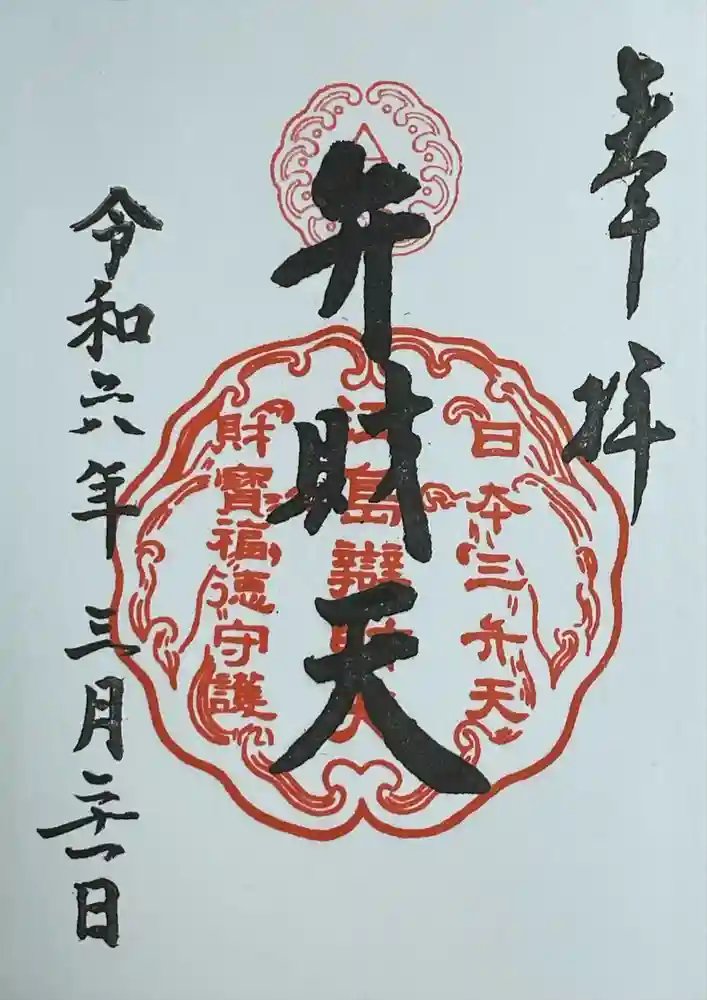 奉拝
日本三弁天
弁財天
江島辯財天
財寳福徳守護
令和六年三月二十一日